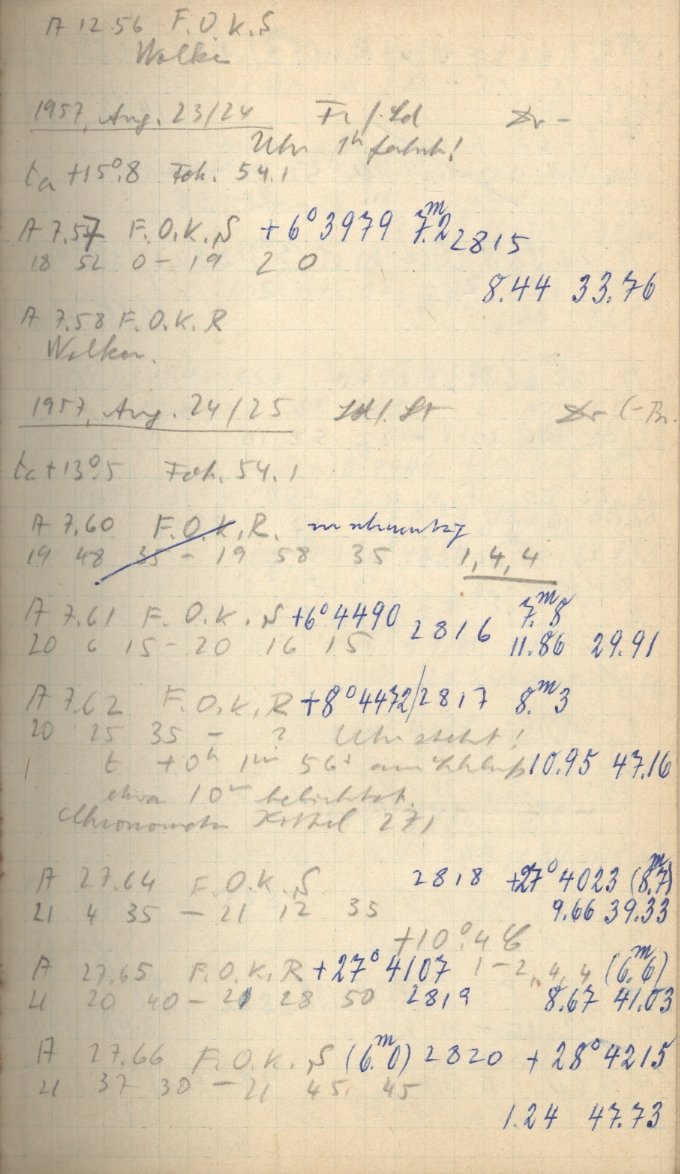 A 1256 F.O.K.S
Wolke
1957, Aug. 23/24 Fr/.Ld Dr -
Uhr 1h falsch!
ta +15°.8 Fok. 54.1
A 7.57 F.O.K.S +6° 3979 7.m2 2815
18 52 0 - 19 2 0
8.44 33.76
A 7.58 F.O.K.R
Wolken.
1957, Aug. 24/25 Ld/.St Dr (-
ta +13°5 Fok. 54.1
A 7.60 F.O.K.R.
19 48 35 - 19 58 35 1,4,4
A 7.61 F.O.K.S +6° 4490 2816 7.m8
20 6 15 - 20 16 15 11.86 29.91
A 7.62 F.O.K.R +8° 4472/2817 8.m3
20 25 35 - ? Uhr steht!
t +0h 1m 56s am Schluß 10.95 47.16
etwa 10m belichtet.
Chronometer Kittel 271
A 27.64 F.O.K.S 2818 +27° 4023 (8.m7)
21 4 35 - 21 12 35 9.66 39.33
+10°.4 C
A 27.65 F.O.K.R +27° 4107 1-2,4,4 (6.m6)
21 20 40 - 21 28 50 2819 8.67 41.03
A 27.66 F.O.K.S (6.m0) 2820 + 28° 4215
21 37 30 - 21 45 45
1.24 47.73